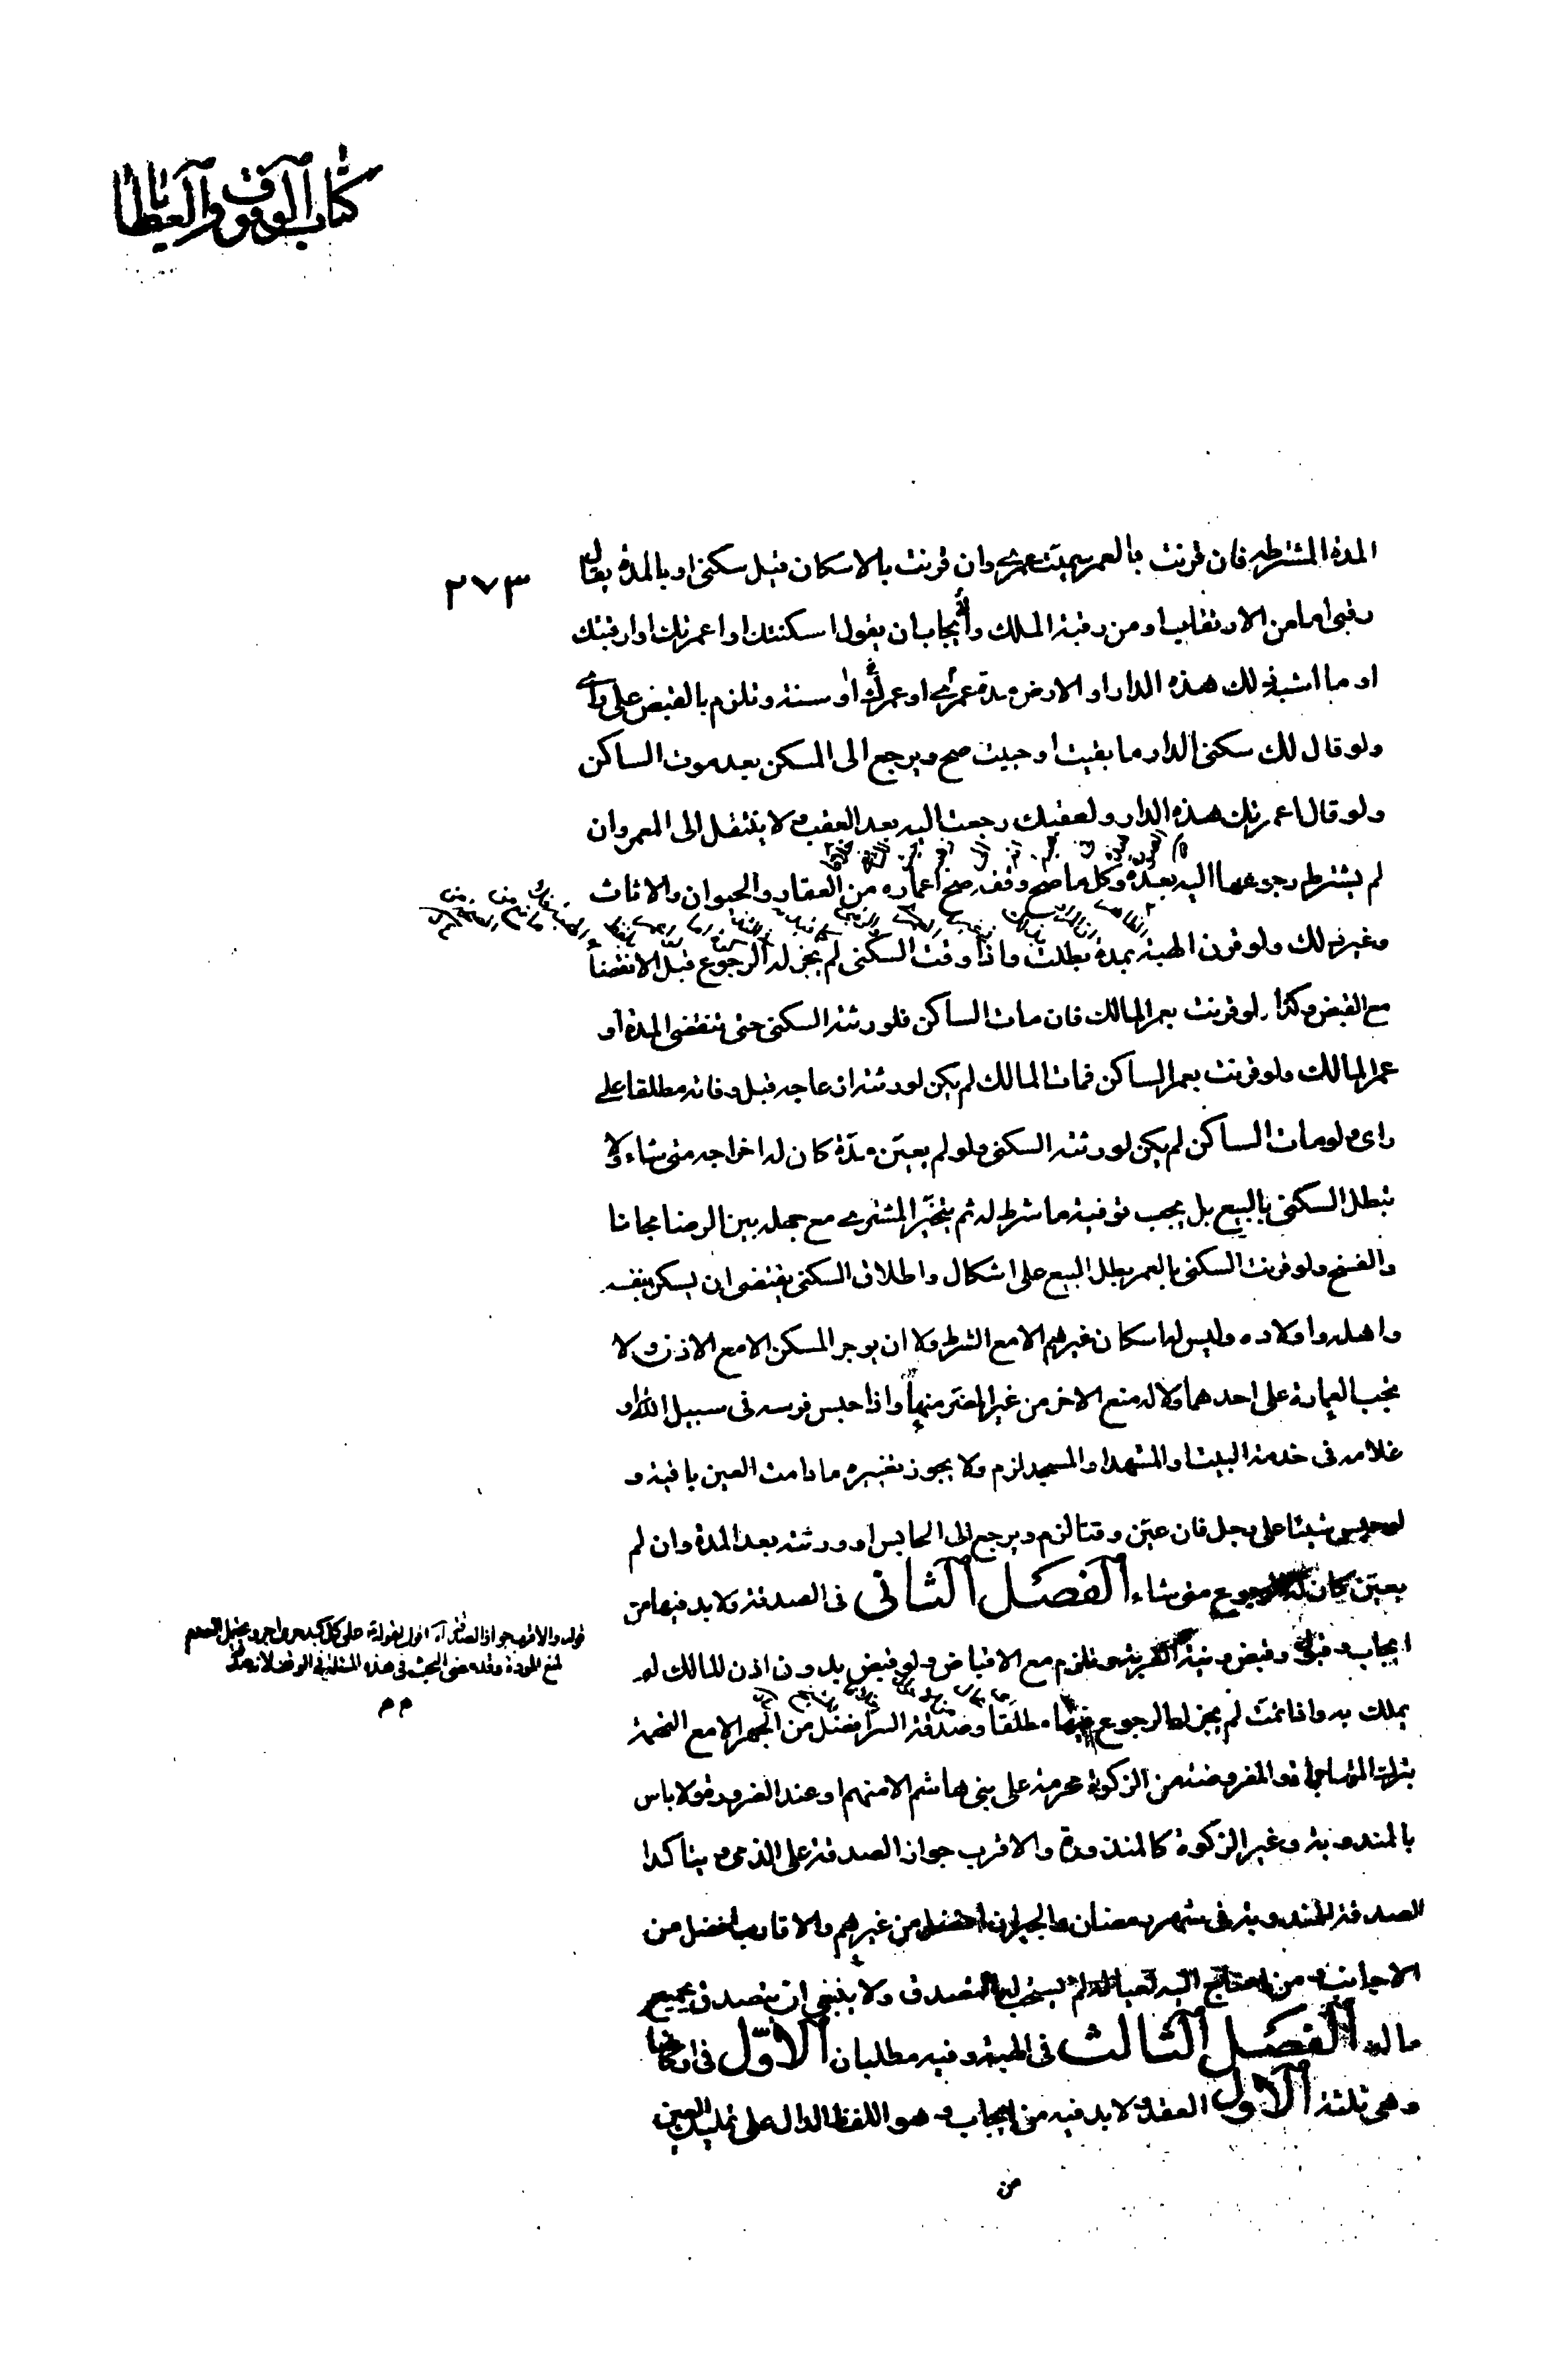 كتاب الوقوف والعطايا
٢٧٣
المدة المشترطة فان قرنت بالعمر سميت عمرى وان قرنت بالاسكان قيل سكنى او بالمدة يقال
رقبى اما من الارتقاب او من رقبة الملك والايجاب ان يقول اسكنتك او اعمرتك او ارقبتك
او ما اشبه ذلك هذه الدار او الارض مدة عمرى او عمرك او سنة وتلزم بالقبض على راى
ولو قال لك سكنى الدار ما بقيت او حييت صح ويرجع الى المسكن بعد موت الساكن
ولو قال اعمرتك هذه الدار ولعقبك رجعت اليه بعد العقب ولا ينتقل الى المعمر وان
لم يشترط رجوعها اليه بعده وكل ما صح وقفه صح اعماره من العقار والحيوان والاثاث
وغير ذلك ولو قرن الهبة بمدة بطلت واذا وقت السكنى لم يجز له الرجوع قبل الانقضا
مع القبض وكذا لو قرنت بعمر المالك فان مات الساكن فلورثته السكنى حتى تنقضى المدة او
عمر المالك ولو قرنت بعمر الساكن فمات المالك لم يكن لورثته ازعاجه قبل وفاته مطلقا على
راى ولو مات الساكن لم يكن لورثته السكنى ولو لم يعين مدة كان له اخراجه متى شاء ولا
تبطل السكنى بالبيع بل يجب توفية ما شرط له ثم يتخير المشترى مع جهله بين الرضا مجانا
والفسخ ولو قرنت السكنى بالعمر بطل البيع على اشكال واطلاق السكنى يقتضى ان يسكن بنفسه
واهله واولاده وليس له اسكان غيرهم الا مع الشرط ولا ان يوجر المسكن الا مع الاذن ولا
تجب العمارة على احدهما ولا له منع الاخر من غير المضر منها واذا حبس فرسه فى سبيل الله او
غلامه فى خدمة البيت او المشهد او المسجد لزم ولا يجوز تغييره ما دامت العين باقية و
لو حبس شيئا على رجل فان عين وقتا لزم ويرجع الى الحابس او ورثته بعد المدة وان لم
يعين كان له الرجوع متى شاء الفصل الثانى فى الصدقة ولابد فيها من
ايجاب وقبول وقبض ونية القربة وتلزم مع الاقباض ولو قبض بدون اذن المالك لم
يملك به واذا تمت لم يجز له الرجوع فيها مطلقا وصدقة السر افضل من الجهر الا مع التهمة
بترك المواساة والمفروضة من الزكوة محرمة على بنى هاشم الا منهم او عند الضرورة ولا باس
بالمندوبة وغير الزكوة كالمنذورة والاقرب جواز الصدقة على الذمى ويتاكد
الصدقة المندوبة فى شهر رمضان والجيران افضل من غيرهم والاقارب افضل من
الاجانب ومن احتاج اليه لعياله لم يستحب له التصدق ولا ينبغى ان يتصدق بجميع
ماله الفصل الثالث فى الهبة وفيه مطلبان الاول فى اركانها
وهى ثلثة الاول العقد ولابد فيه من ايجاب وهو اللفظ الدال على تمليك العين
من
قوله والاقرب جواز الصدقة آه اقول لقوله على كل كبد حرى اجر ويحتمل العدم
لمنع المودة وقد مضى البحث فى هذه المسئلة فى الوقف
م م